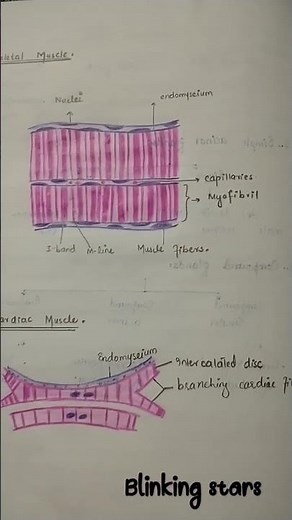 letal Muscle.
Nuclei
endomyseium
capillaries
Myofibril
I-band
M-line
Muscle fibers.
ardiac Muscle.
Endomyseium
intercalated disc
branching cardiac fi
Blinking stars